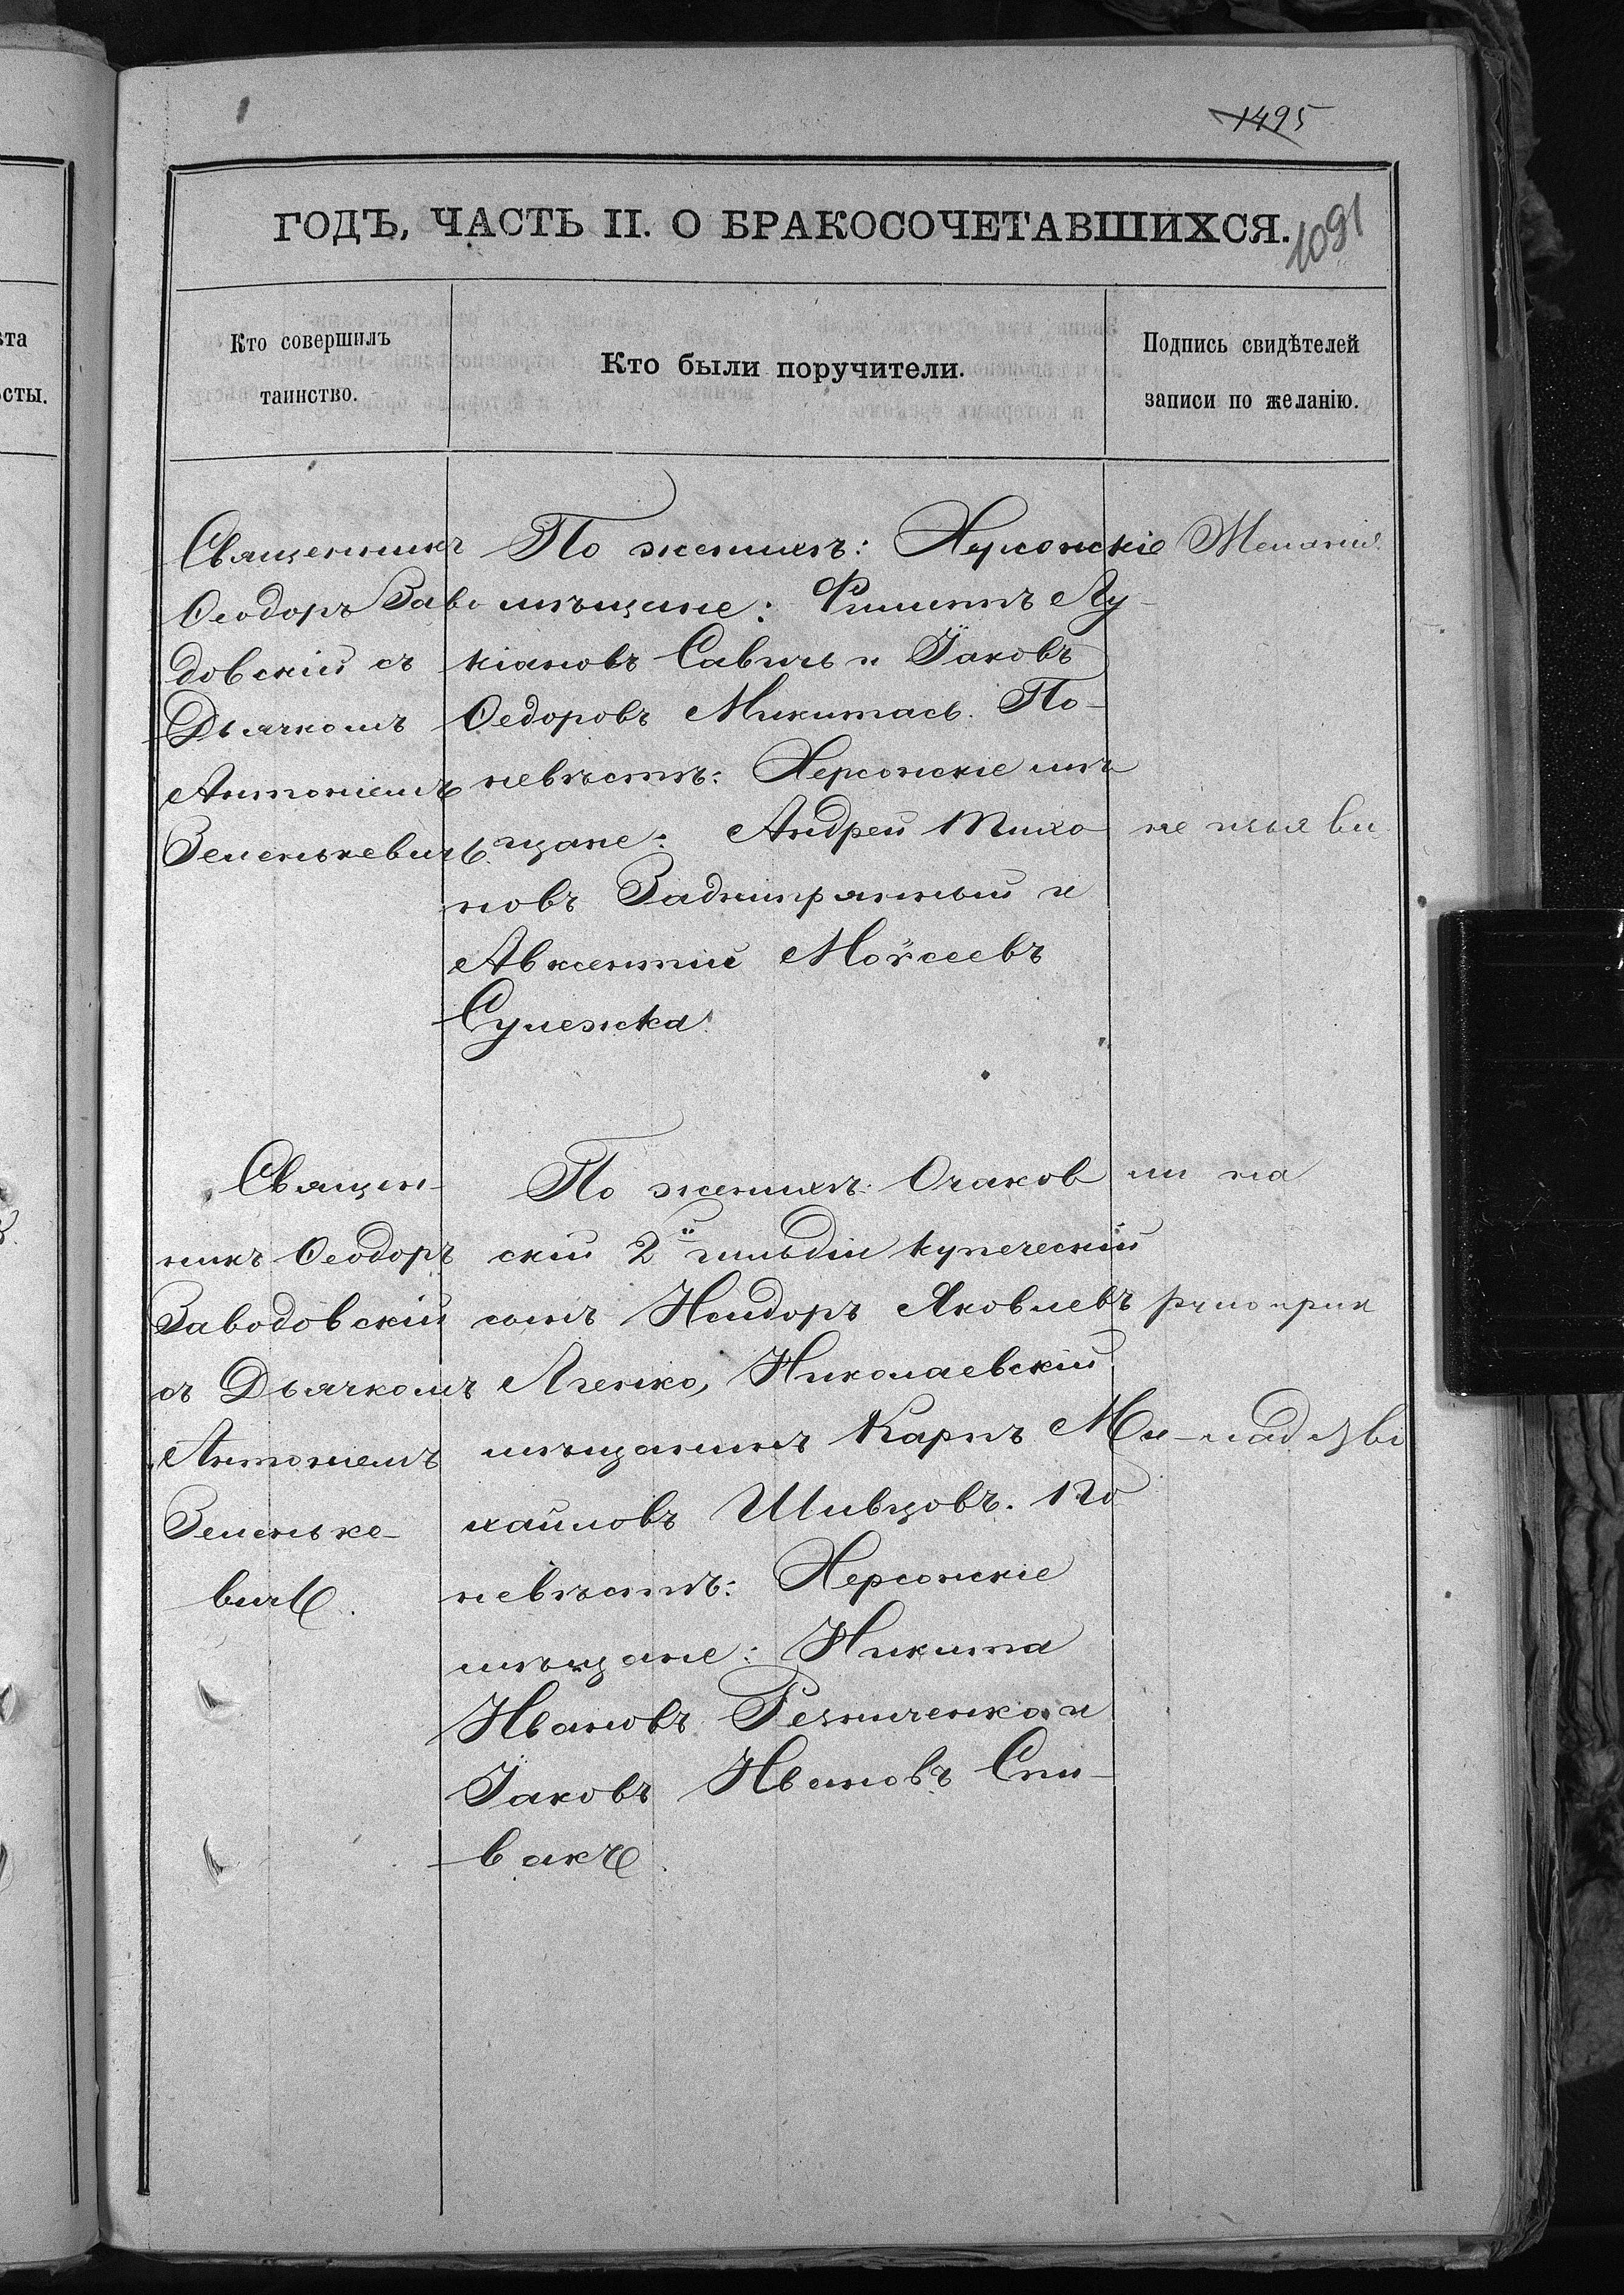 1495
ГОДЪ, ЧАСТЬ II. О БРАКОСОЧЕТАВШИХСЯ.
1091
Кто совершилъ
таинство.
Кто были поручители.
Подпись свидѣтелей
записи по желанію.
Священникъ
Ѳеодоръ Заво
довскій съ
Дьячкомъ
Антоніемъ
Зеленькевичъ.
По женихѣ: Херсонскіе
мѣщане: Филиппъ Лу-
кіановъ Савичъ и Іаковъ
Ѳедоровъ Микитась. По-
невѣстѣ: Херсонскіе мѣ
щане: Андрей Тихо
новъ Заднипряный и
Авксентій Моѵсеевъ
Сулежка.
Священ-
никъ Ѳеодоръ
Заводовскій
съ Дьячкомъ
Антоніемъ
Зеленьке-
вичъ.
По женихѣ: Очаков
скій 2й гильдіи купеческій
сынъ Исидоръ Яковлевъ
Ягенко, Николаевскій
мѣщанинъ Карпъ Ми-
хайловъ Шивцовъ. По
невѣстѣ: Херсонскіе
мѣщане: Никита
Ивановъ Резниченко и
Іаковъ Ивановъ Спи-
вакъ.
ли на
ста
сты.